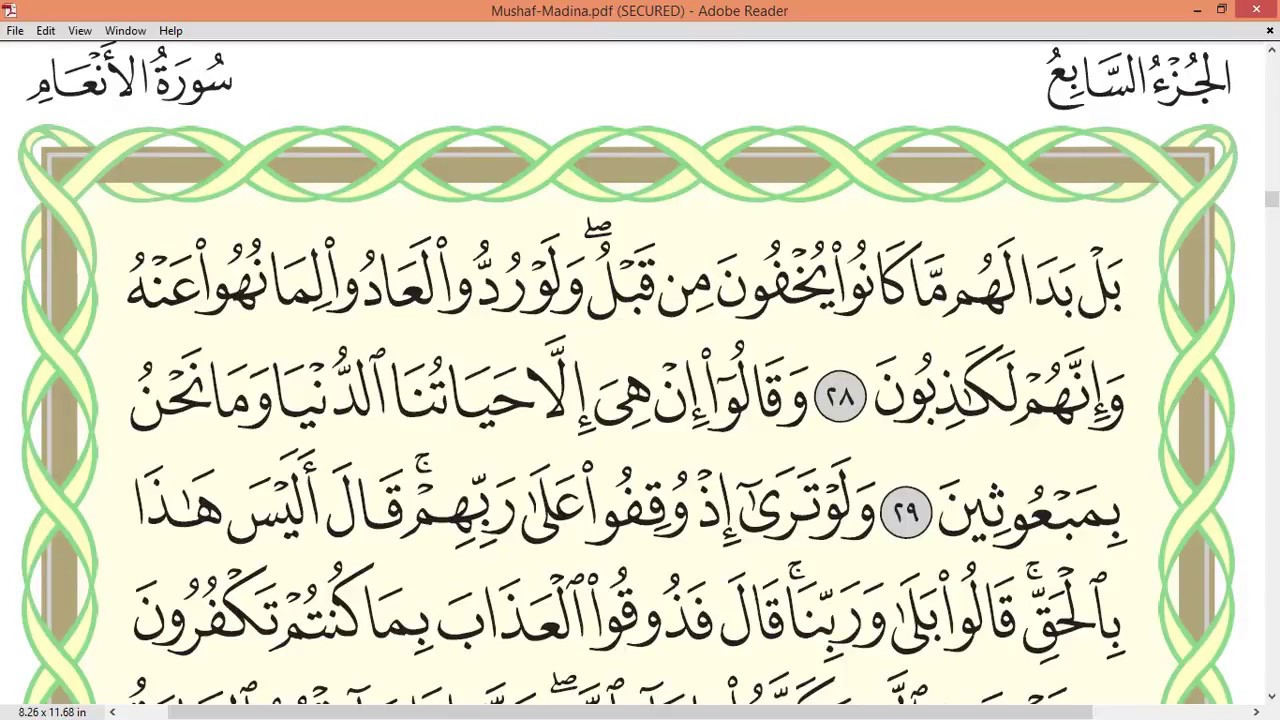 Mushaf-Madina.pdf (SECURED) - Adobe Reader
File Edit View Window Help
الجُزْءُ السَّابِعُ سُورَةُ الأَنْعَامِ
بَلْ بَدَا لَهُم مَّا كَانُوا۟ يُخْفُونَ مِن قَبْلُ ۖ وَلَوْ رُدُّوا۟ لَعَادُوا۟ لِمَا نُهُوا۟ عَنْهُ
وَإِنَّهُمْ لَكَـٰذِبُونَ ٢٨ وَقَالُوٓا۟ إِنْ هِىَ إِلَّا حَيَاتُنَا ٱلدُّنْيَا وَمَا نَحْنُ
بِمَبْعُوثِينَ ٢٩ وَلَوْ تَرَىٰٓ إِذْ وُقِفُوا۟ عَلَىٰ رَبِّهِمْ ۚ قَالَ أَلَيْسَ هَـٰذَا
بِٱلْحَقِّ ۚ قَالُوا۟ بَلَىٰ وَرَبِّنَا ۚ قَالَ فَذُوقُوا۟ ٱلْعَذَابَ بِمَا كُنتُمْ تَكْفُرُونَ
8.26 x 11.68 in